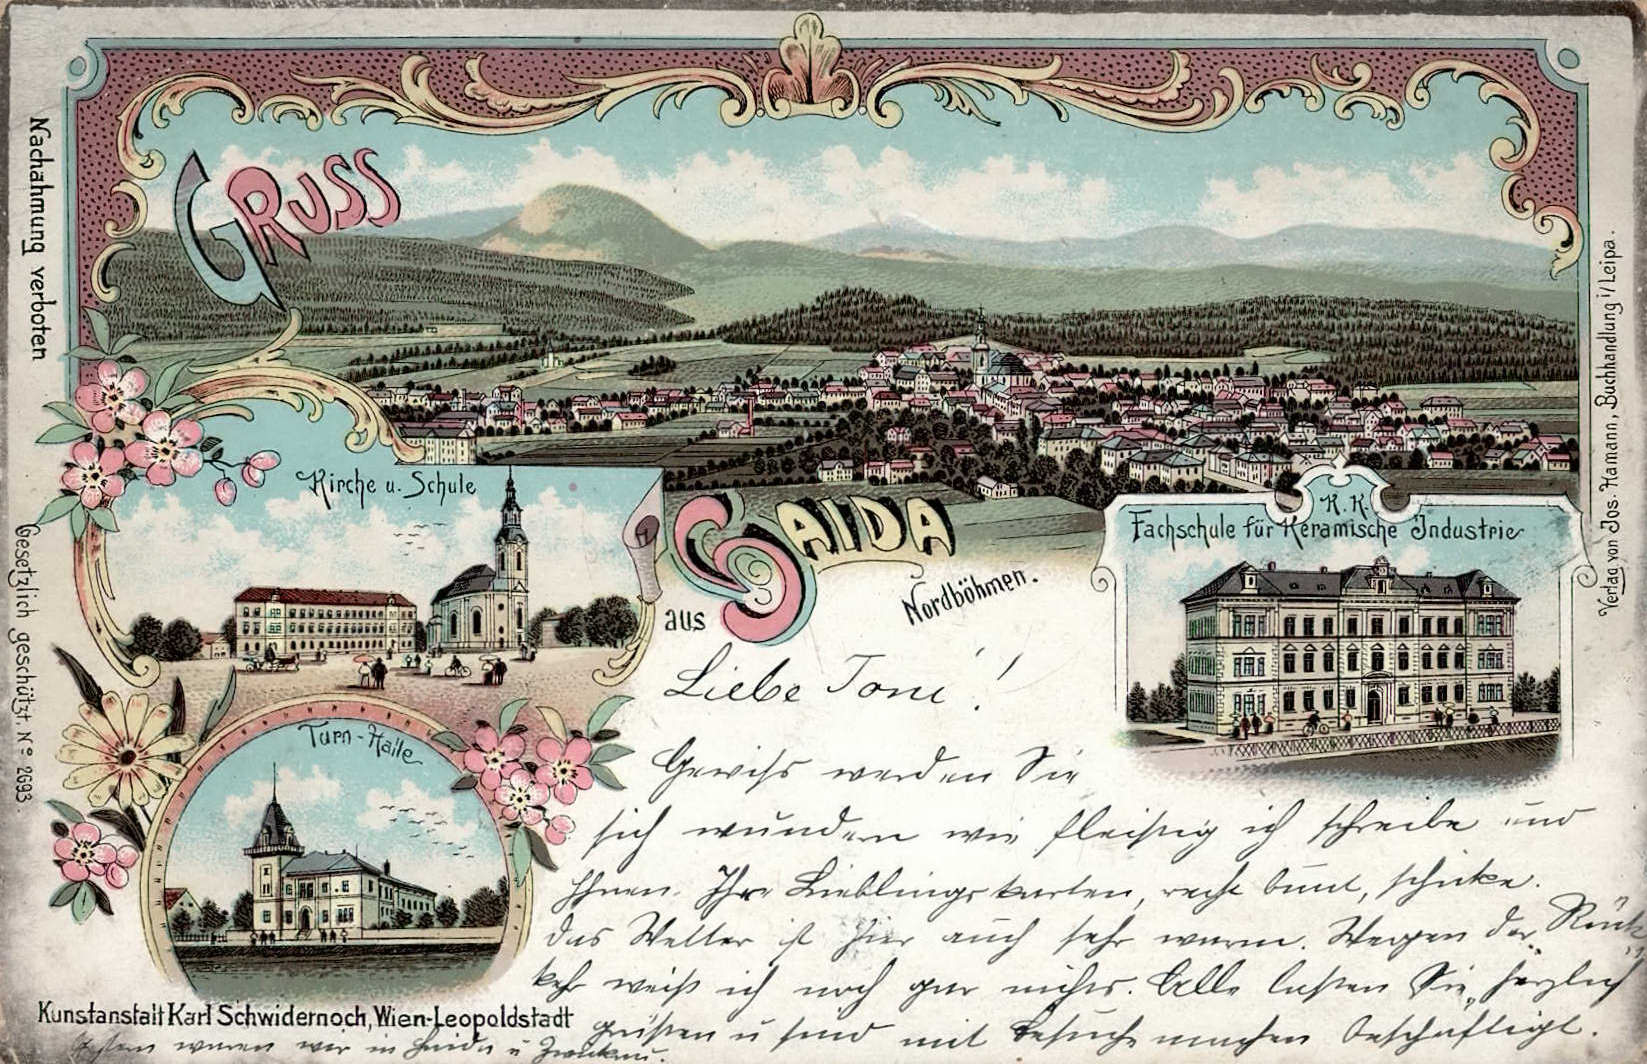 GRUSS
aus
HAIDA
Nordböhmen.
Kirche u. Schule
K. K.
Fachschule für Keramische Industrie
Turn-Halle
Nachahmung verboten
Gesetzlich geschützt, No 2693.
Verlag von Jos. Hamann, Buchhandlung i/ Leipa.
Kunstanstalt Karl Schwidernoch, Wien-Leopoldstadt
Liebe Toni!
Gewiss werden Sie
sich wundern wie fleißig ich schreibe und
Ihnen Ihre Lieblingskarten, recht bunt, schicke.
das Wetter ist hier auch sehr warm. Wegen der Rück
kehr weiß ich noch gar nichts. Alle lassen Sie herzlich
grüßen u sind mit Besuche machen beschäftigt.
Gestern waren wir in Haida u Zwickau.